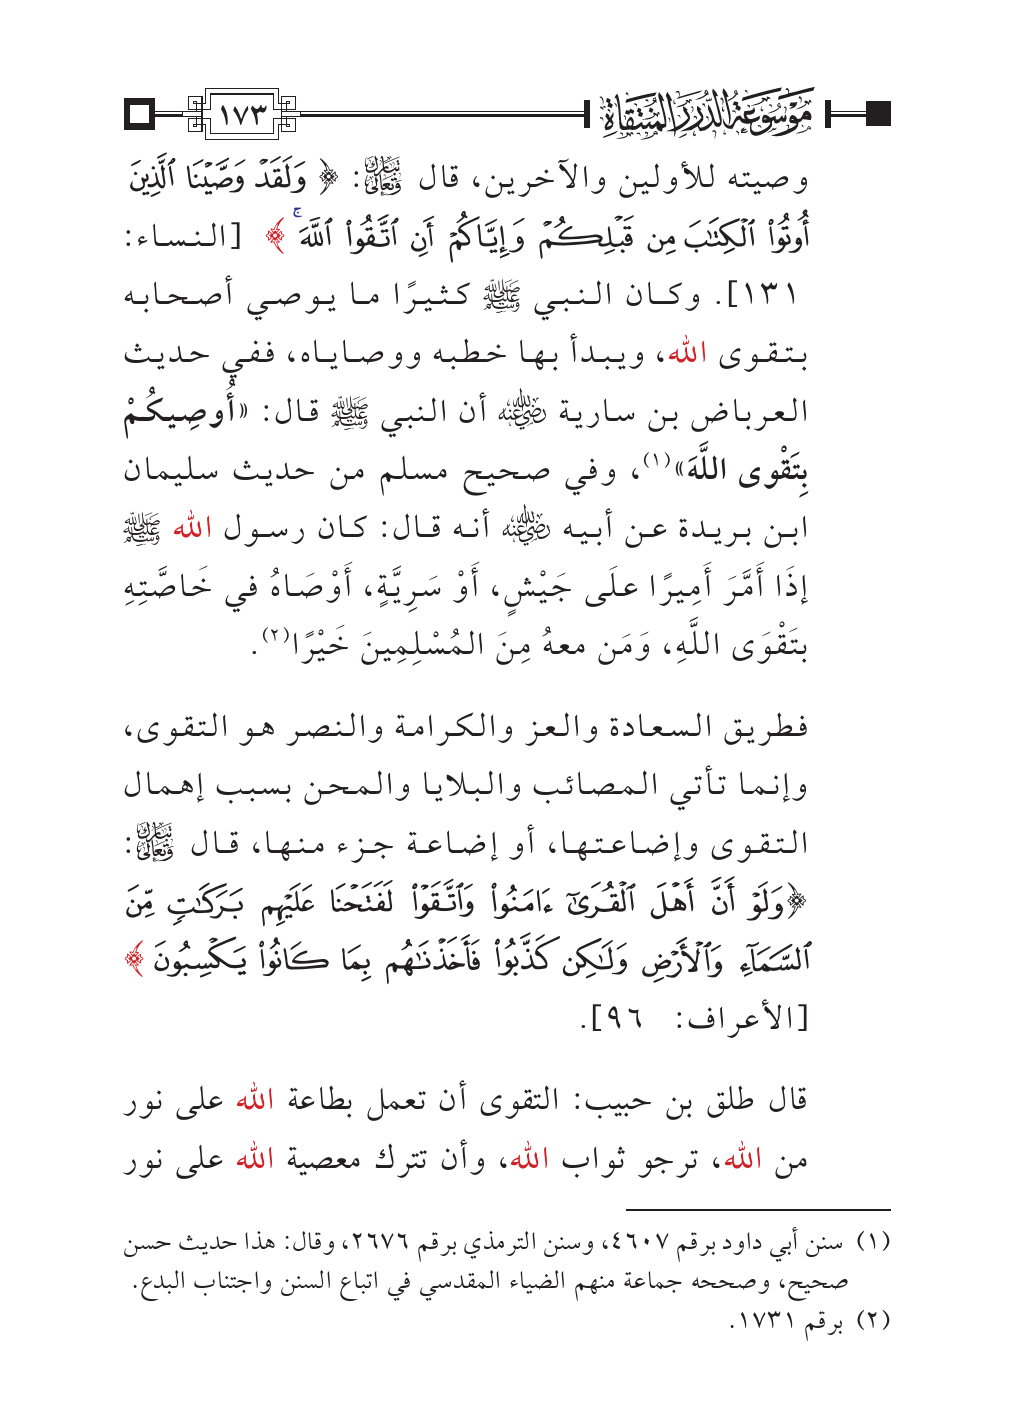 موسوعة الدرر المنتقاة
١٧٣
وصيته للأولين والآخرين، قال تبارك وتعالى: ﴿ وَلَقَدْ وَصَّيْنَا ٱلَّذِينَ
أُوتُوا۟ ٱلْكِتَٰبَ مِن قَبْلِكُمْ وَإِيَّاكُمْ أَنِ ٱتَّقُوا۟ ٱللَّهَ ۚ ﴾ [النساء:
١٣١]. وكان النبي ﷺ كثيرًا ما يوصي أصحابه
بتقوى الله، ويبدأ بها خطبه ووصاياه، ففي حديث
العرباض بن سارية رضي الله عنه أن النبي ﷺ قال: «أُوصِيكُمْ
بِتَقْوى اللَّهَ»(١)، وفي صحيح مسلم من حديث سليمان
ابن بريدة عن أبيه رضي الله عنه أنه قال: كان رسول الله ﷺ
إذَا أَمَّرَ أَمِيرًا علَى جَيْشٍ، أَوْ سَرِيَّةٍ، أَوْصَاهُ في خَاصَّتِهِ
بتَقْوَى اللَّهِ، وَمَن معهُ مِنَ المُسْلِمِينَ خَيْرًا(٢).
فطريق السعادة والعز والكرامة والنصر هو التقوى،
وإنما تأتي المصائب والبلايا والمحن بسبب إهمال
التقوى وإضاعتها، أو إضاعة جزء منها، قال تبارك وتعالى:
﴿وَلَوْ أَنَّ أَهْلَ ٱلْقُرَىٰٓ ءَامَنُوا۟ وَٱتَّقَوْا۟ لَفَتَحْنَا عَلَيْهِم بَرَكَٰتٍ مِّنَ
ٱلسَّمَآءِ وَٱلْأَرْضِ وَلَٰكِن كَذَّبُوا۟ فَأَخَذْنَٰهُم بِمَا كَانُوا۟ يَكْسِبُونَ ﴾
[الأعراف: ٩٦].
قال طلق بن حبيب: التقوى أن تعمل بطاعة الله على نور
من الله، ترجو ثواب الله، وأن تترك معصية الله على نور
(١) سنن أبي داود برقم ٤٦٠٧، وسنن الترمذي برقم ٢٦٧٦، وقال: هذا حديث حسن
صحيح، وصححه جماعة منهم الضياء المقدسي في اتباع السنن واجتناب البدع.
(٢) برقم ١٧٣١.